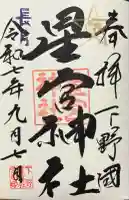 奉拝 下野國
星宮神社
長月
令和七年九月七日